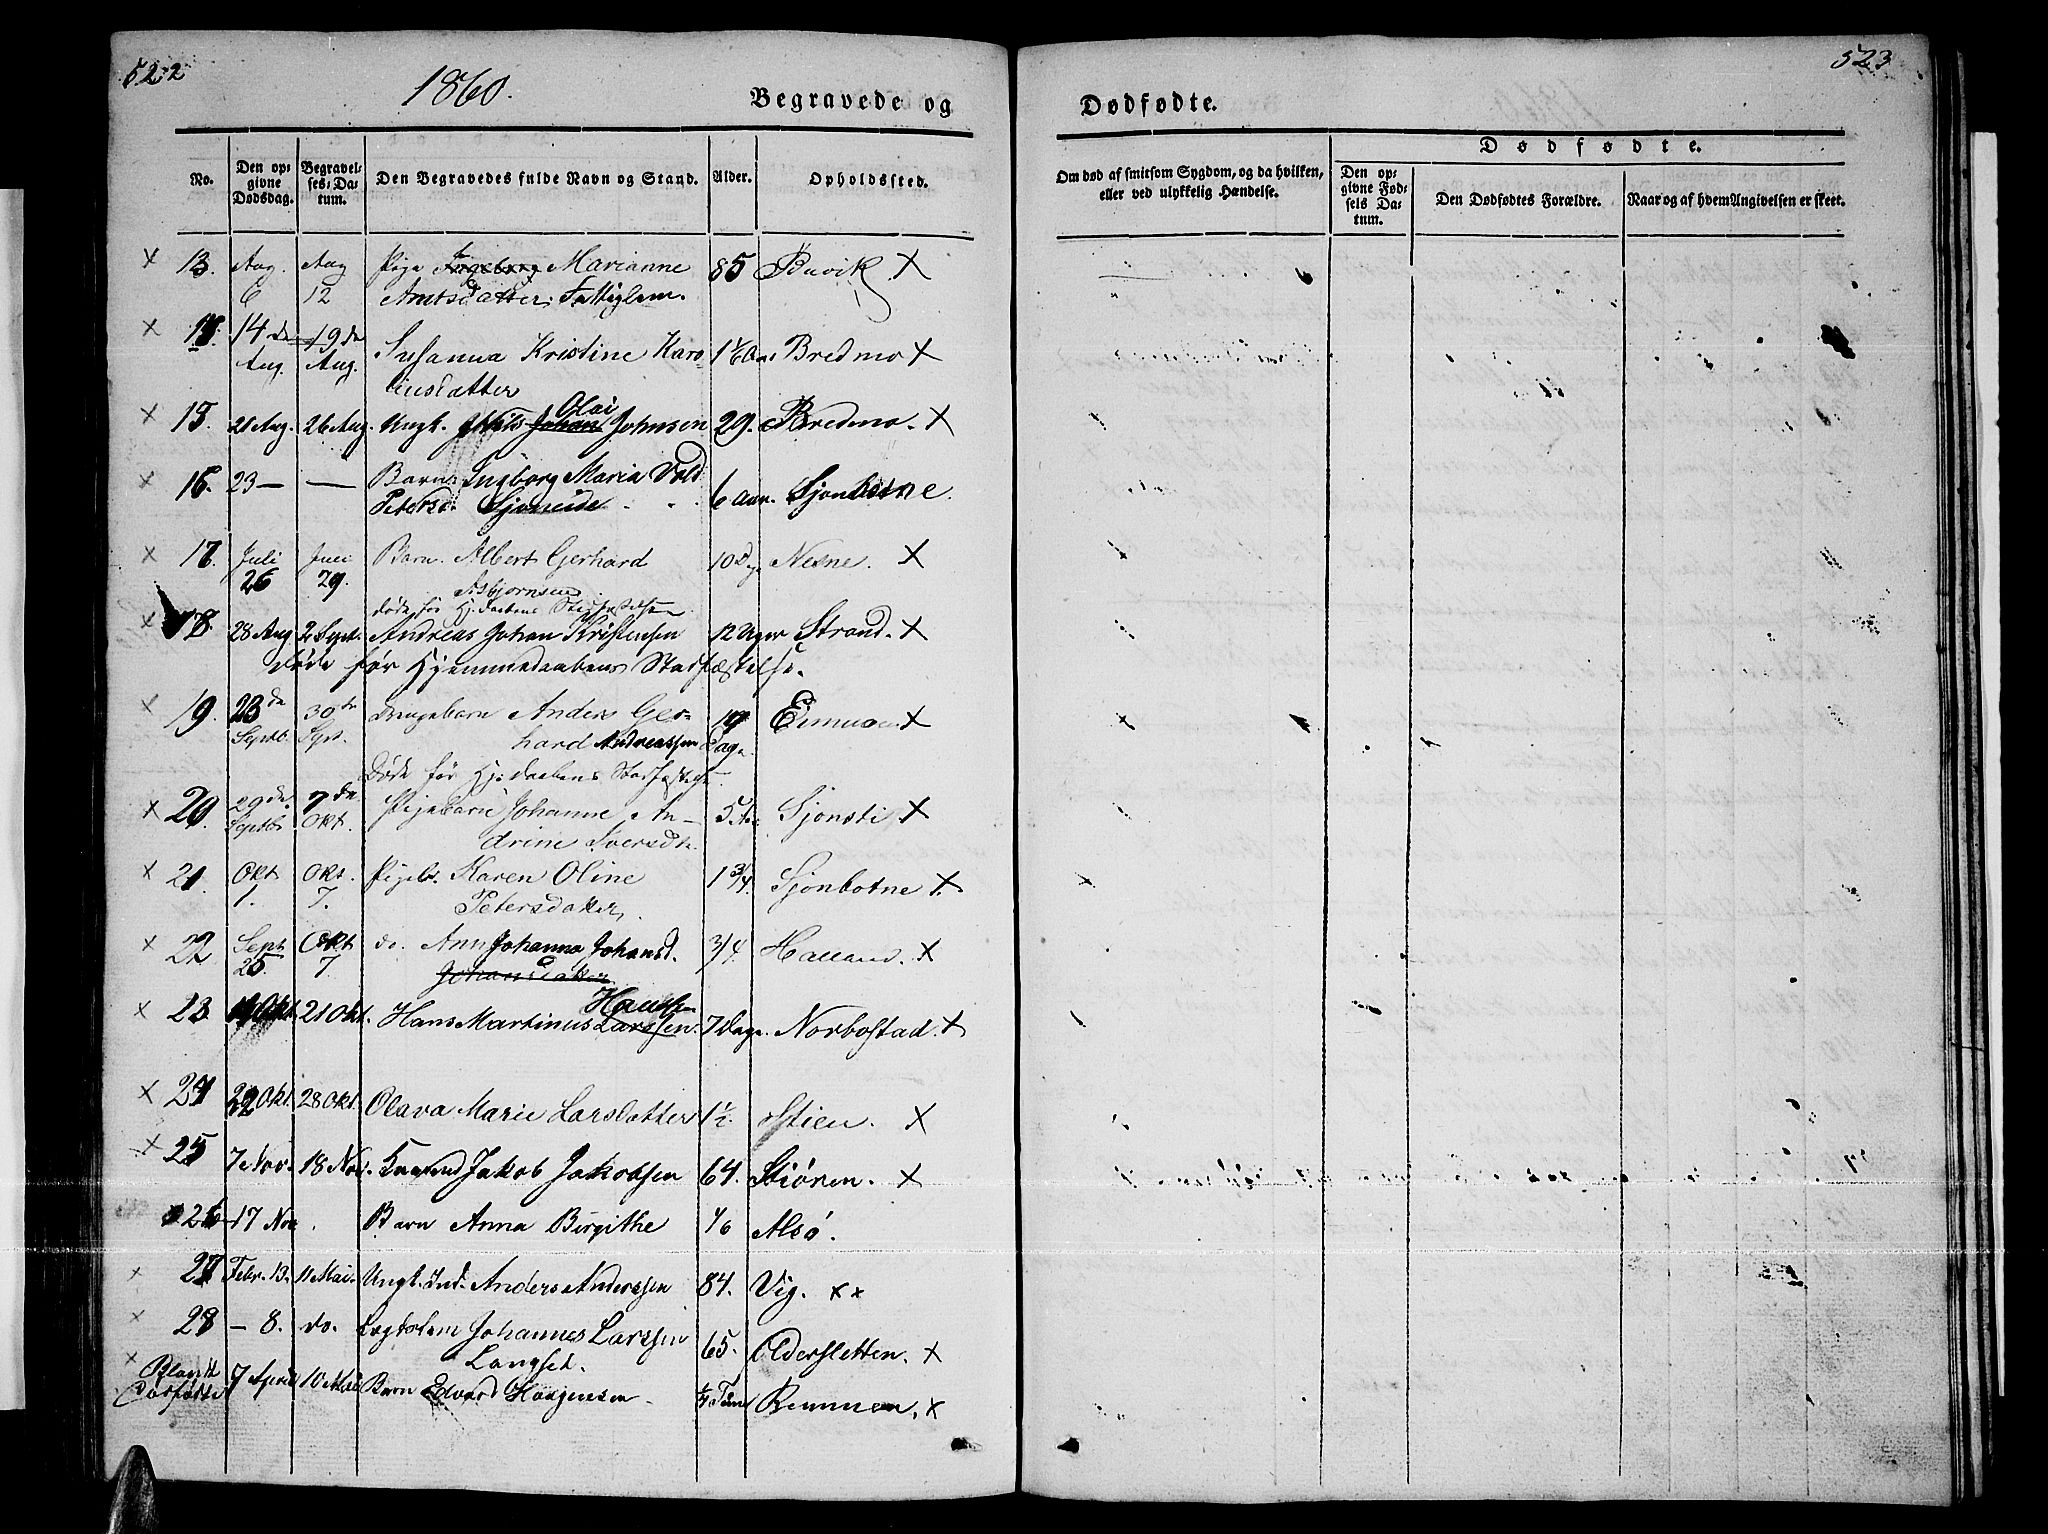 522
1860.
Begravede og
Dødfødte.
523
No.
Den opgivne Dødsdag.
Begravelses-Datum.
Den Begravedes fulde Navn og Stand.
Alder.
Opholdssted.
Om død af smitsom Sygdom, og da hvilken, eller ved ulykkelig Hændelse.
Dødfødte.
Den opgivne Fødsels Datum.
Den Dødfødtes Forældre.
Naar og af hvem Angivelsen er skeet.
x 13. Aug. Aug Pige Ingeborg Marianne 85 Buvik x
6 12 Amtsdatter, Fattiglem.
x 14. 14 de 19 de Susanna Kristine Karo 1 1/6 Aar Bredmo x
Aug. Aug. linesdatter
x 15. 21 Aug. 26 Aug. Ungk. Nils Johan Olai Johnsen 29. Bredmo. x
x 16. 23 — — Barn Ingborg Maria
Petersd. Sjoneide 6 Aar. Sjonbotne.
x 17. Juli Juli Barn. Albert Gerhard 10 D. Nesne. x
26 29. Asbjørnsen
døde før Hj.daabens Stadfæstelse
x 18. 28 Aug 2 Sept. Andreas Johan Kristensen 12 Uger Strand. x
døde før Hjemmedaabens Stadfæstelse.
x 19. 23 de 30 te Drengebarn Anders Ger- x
Septb. Sept. hard Andreassen Dage
Døde før Hj.daabens Stadfæstelse
x 20. 29 de 7 de Pigebarn Johanne An- 5 Sjonsti x
Septb. Okt. drine Iversdtr.
x 21. Okt Okt. Pigeb. Karen Oline 1 3/4. Sjonbotne x
1. 7. Petersdatter,
x 22 Sept Okt do. Ann Johanna Johansd. 3/4 Halland. x
25. 7 Johansdatter
Hanssen
x 23. Okt. 21 Okt. Hans Martinus Larssen. 7 Dage. Norbostad. x
x 24 22 Okt. 28 Okt. Olava Marie Larsdatter 1 1/2. Stien. x
x 25 7 Nov. 18 Nov. Jakob Jakobsen 64. Stiøren. x
26 17 Nov . Barn Anna Birgithe Alsø.
x 27 Febr. 13. 11 Mai. Ungk. Ind. Anders Anderssen 84. Vig. x x
x 28 — 8. do. Lægdslem Johannes Larssen 65. Oldersletten. x
Langset.
x 7 April 10 Mai Barn Edvard Haagensen Time x